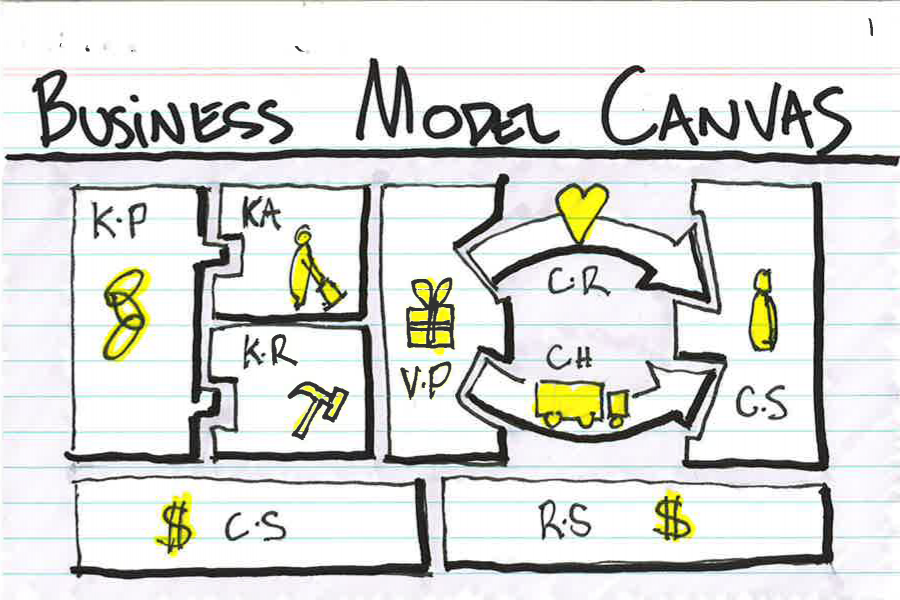 1
BUSiNESS MODEL CANVAS
K·P
KA
K·R
V·P
C·R
CH
C·S
$ C·S
R·S $